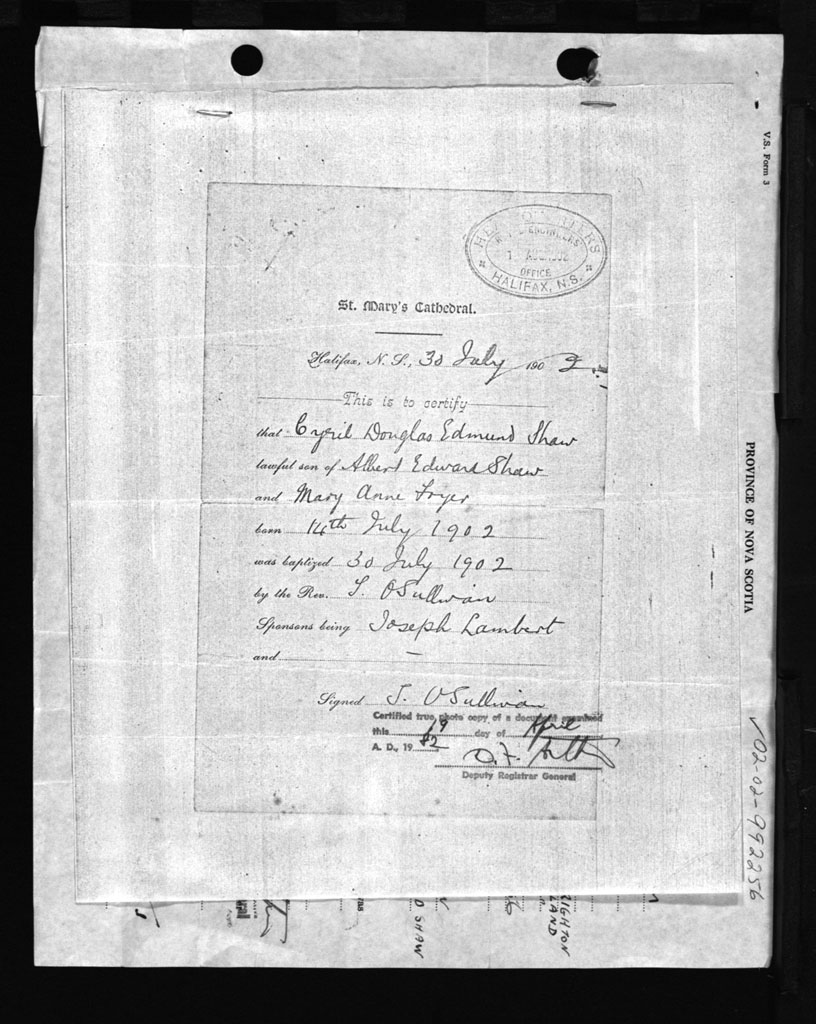 V.S. Form 3
OFFICE
HALIFAX, N.S.
St. Mary's Cathedral.
Halifax, N. S., 30 July 1902
This is to certify
that Cyril Douglas Edmund Shaw
lawful son of Albert Edward Shaw
and Mary Anne Fryer
born 14th July 1902
was baptized 30 July 1902
by the Rev. T. OSullivan
Sponsors being Joseph Lambert
and —
Signed T. OSullivan
Certified true photo copy of a document examined
this 19 day of April
A. D., 19 82
D. F.
Deputy Registrar General
PROVINCE OF NOVA SCOTIA
02-02-992256
D SHAW
IGHTON
LAND